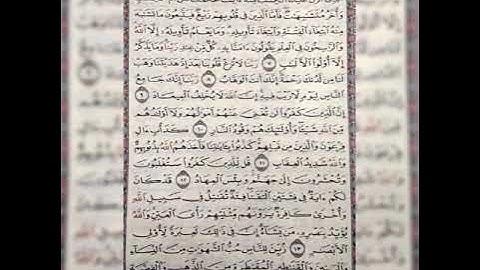 وَأُخَرُ مُتَشَٰبِهَٰتٌ فَأَمَّا ٱلَّذِينَ فِي قُلُوبِهِمْ زَيْغٌ فَيَتَّبِعُونَ مَا تَشَٰبَهَ
مِنْهُ ٱبْتِغَآءَ ٱلْفِتْنَةِ وَٱبْتِغَآءَ تَأْوِيلِهِۦ وَمَا يَعْلَمُ تَأْوِيلَهُۥٓ إِلَّا ٱللَّهُ
وَٱلرَّٰسِخُونَ فِي ٱلْعِلْمِ يَقُولُونَ ءَامَنَّا بِهِۦ كُلٌّ مِّنْ عِندِ رَبِّنَا وَمَا يَذَّكَّرُ
إِلَّآ أُو۟لُوا۟ ٱلْأَلْبَٰبِ ٧ رَبَّنَا لَا تُزِغْ قُلُوبَنَا بَعْدَ إِذْ هَدَيْتَنَا وَهَبْ
لَنَا مِن لَّدُنكَ رَحْمَةً إِنَّكَ أَنتَ ٱلْوَهَّابُ ٨ رَبَّنَآ إِنَّكَ جَامِعُ
ٱلنَّاسِ لِيَوْمٍ لَّا رَيْبَ فِيهِ إِنَّ ٱللَّهَ لَا يُخْلِفُ ٱلْمِيعَادَ ٩
إِنَّ ٱلَّذِينَ كَفَرُوا۟ لَن تُغْنِيَ عَنْهُمْ أَمْوَٰلُهُمْ وَلَآ أَوْلَٰدُهُم
مِّنَ ٱللَّهِ شَيْـًٔا وَأُو۟لَٰٓئِكَ هُمْ وَقُودُ ٱلنَّارِ ١٠ كَدَأْبِ ءَالِ
فِرْعَوْنَ وَٱلَّذِينَ مِن قَبْلِهِمْ كَذَّبُوا۟ بِـَٔايَٰتِنَا فَأَخَذَهُمُ ٱللَّهُ بِذُنُوبِهِمْ
وَٱللَّهُ شَدِيدُ ٱلْعِقَابِ ١١ قُل لِّلَّذِينَ كَفَرُوا۟ سَتُغْلَبُونَ
وَتُحْشَرُونَ إِلَىٰ جَهَنَّمَ وَبِئْسَ ٱلْمِهَادُ ١٢ قَدْ كَانَ
لَكُمْ ءَايَةٌ فِي فِئَتَيْنِ ٱلْتَقَتَا فِئَةٌ تُقَٰتِلُ فِي سَبِيلِ ٱللَّهِ
وَأُخْرَىٰ كَافِرَةٌ يَرَوْنَهُم مِّثْلَيْهِمْ رَأْيَ ٱلْعَيْنِ وَٱللَّهُ
يُؤَيِّدُ بِنَصْرِهِۦ مَن يَشَآءُ إِنَّ فِي ذَٰلِكَ لَعِبْرَةً لِّأُو۟لِي
ٱلْأَبْصَٰرِ ١٣ زُيِّنَ لِلنَّاسِ حُبُّ ٱلشَّهَوَٰتِ مِنَ ٱلنِّسَآءِ
وَٱلْبَنِينَ وَٱلْقَنَٰطِيرِ ٱلْمُقَنطَرَةِ مِنَ ٱلذَّهَبِ وَٱلْفِضَّةِ